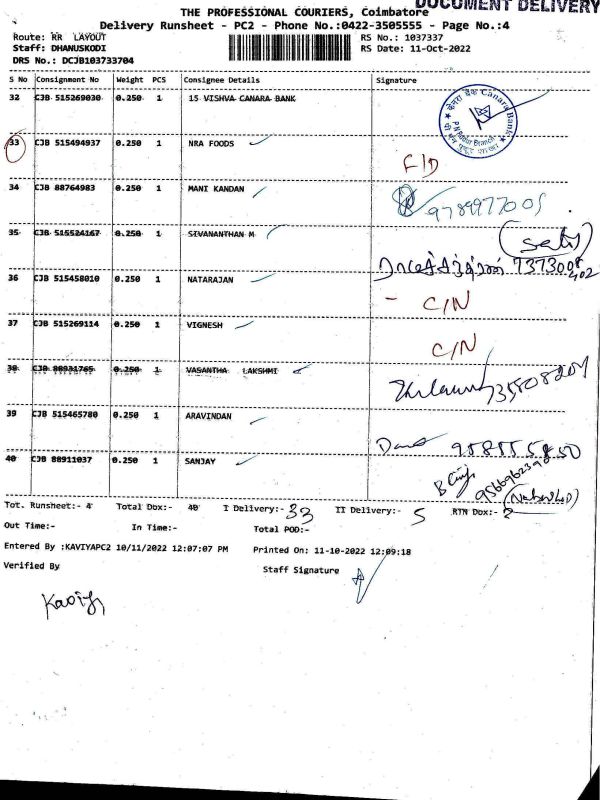 DOCUMENT DELIVERY
THE PROFESSIONAL COURIERS, Coimbatore
Delivery Runsheet - PC2 - Phone No.:0422-3505555 - Page No.:4
Route: RR LAYOUT
RS No.: 1037337
Staff: DHANUSKODI
RS Date: 11-Oct-2022
DRS No.: DCJB103733704
S No Consignment No Weight PCS Consignee Details Signature
32 CJB 515269030 0.250 1 15 VISHVA CANARA BANK
केनरा बैंक Canara Bank
33 CJB 515494937 0.250 1 NRA FOODS
F/D
34 CJB 88764983 0.250 1 MANI KANDAN
9789977005
35 CJB 515524167 0.250 1 SIVANANTHAN M
36 CJB 515458010 0.250 1 NATARAJAN
- C/N
37 CJB 515269114 0.250 1 VIGNESH
C/N
38 CJB 88931765 0.250 1 VASANTHA LAKSHMI
39 CJB 515465780 0.250 1 ARAVINDAN
40 CJB 88911037 0.250 1 SANJAY
Tot. Runsheet:- 4 Total Dox:- 40 I Delivery:- 33 II Delivery:- 5 RTN Dox:- 2
Out Time:- In Time:- Total POD:-
Entered By :KAVIYAPC2 10/11/2022 12:07:07 PM Printed On: 11-10-2022 12:09:18
Verified By Staff Signature